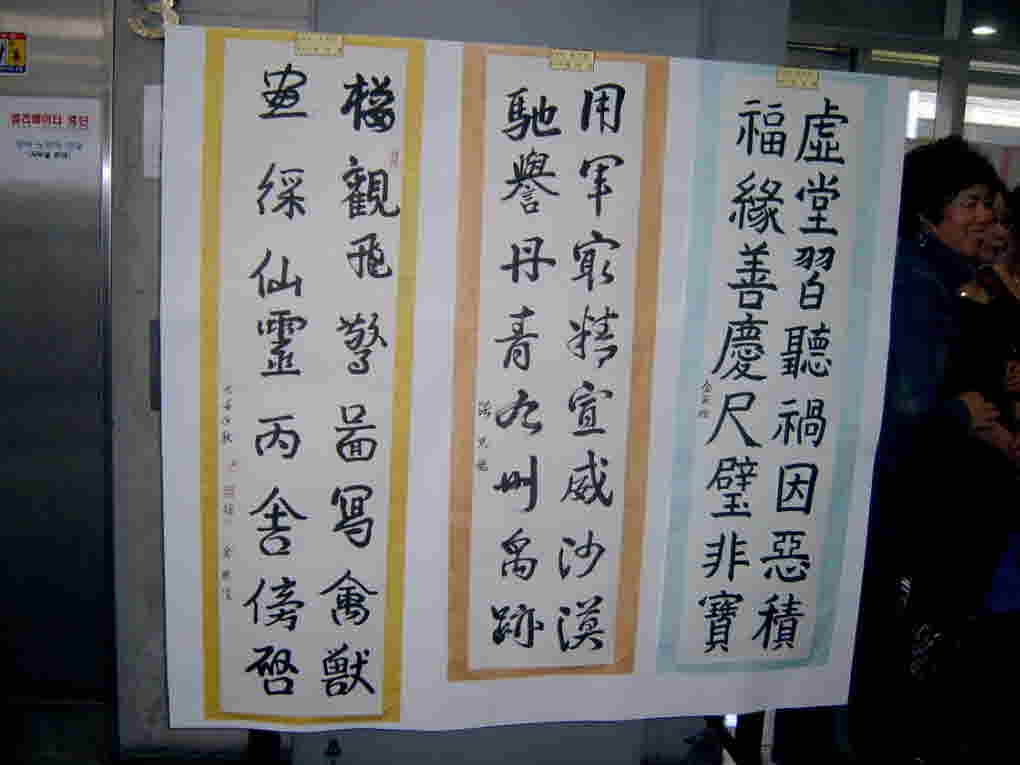 虛堂習聽禍因惡積
福緣善慶尺璧非寶
用軍最精宣威沙漠
馳譽丹青九州禹跡
樓觀飛驚圖寫禽獸
畫綵仙靈丙舍傍啓